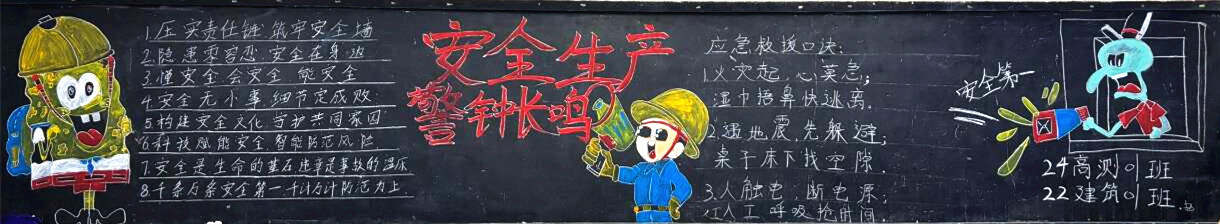 1.压实责任链 筑牢安全墙
2.隐患零容忍 安全在身边
3.懂安全 会安全 能安全
4.安全无小事 细节定成败
5.构建安全文化 守护共同家园
6.科技赋能安全 智能防范风险
7.安全是生命的基石 违章是事故的温床
8.千条万条安全第一 千计万计防范为上
安全生产
警钟长鸣
应急救援口诀:
1.火灾起,心莫急;
湿巾捂鼻快逃离.
2.遇地震,先躲避;
桌子床下找空隙.
3.人触电,断电源;
人工呼吸抢时间.
安全第一
24高测01班
22建筑01班